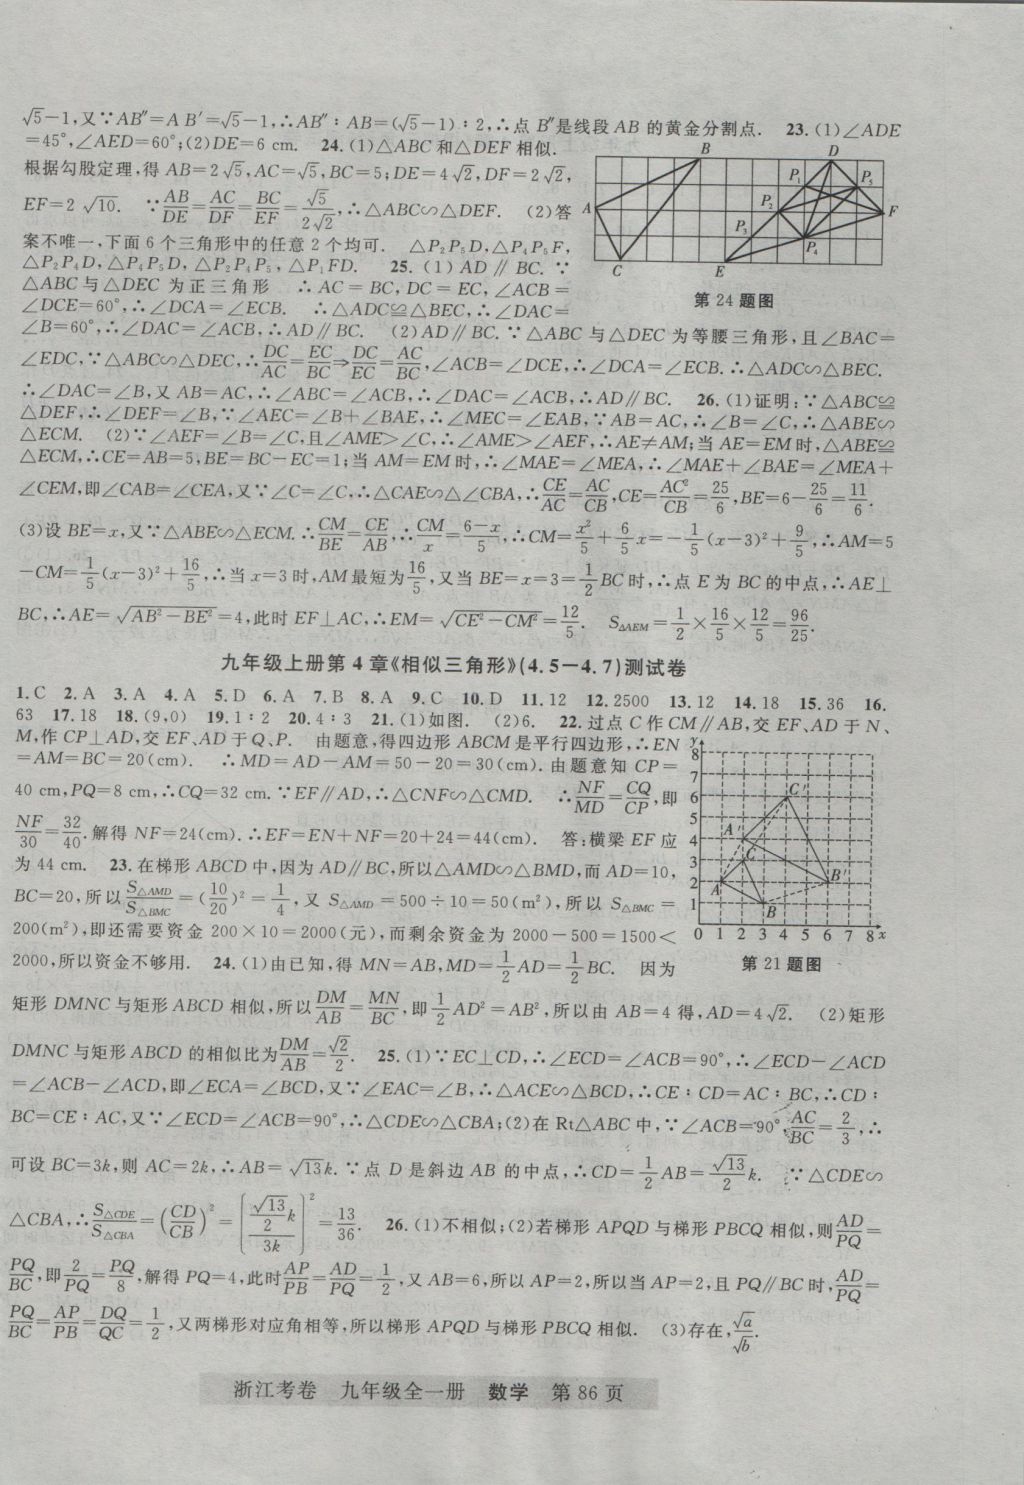 √5-1,又∵AB″=A B′=√5-1,∴AB″∶AB=(√5-1)∶2,∴点 B″是线段 AB 的黄金分割点.　23.(1)∠ADE
=45°,∠AED=60°;(2)DE=6 cm.　24.(1)△ABC 和△DEF 相似.
根据勾股定理,得 AB=2√5,AC=√5,BC=5;DE=4√2,DF=2√2,
EF=2 √10.　∵AB/DE=AC/DF=BC/EF=√5/2√2,∴△ABC∽△DEF.　(2)答
案不唯一,下面 6 个三角形中的任意 2 个均可.　△P₂P₅D,△P₄P₅F,
△P₂P₄D,△P₄P₅D,△P₂P₄P₅,△P₁FD.　25.(1) AD∥BC.∵
△ABC 与△DEC 为正三角形　∴AC=BC,DC=EC,∠ACB=
∠DCE=60°,∴∠DCA=∠ECB.　∴△ADC≌△BEC,∴∠DAC=
∠B=60°,∴∠DAC=∠ACB,∴AD∥BC.　(2)AD∥BC.∵△ABC 与△DEC 为等腰三角形,且∠BAC=
∠EDC,∵△ABC∽△DEC,∴DC/AC=EC/BC⇒DC/EC=AC/BC,∠ACB=∠DCE,∴∠DCA=∠ECB.∴△ADC∽△BEC.
∴∠DAC=∠B,又 AB=AC,∴∠ABC=∠ACB,∴∠DAC=∠ACB,∴AD∥BC.　26.(1)证明:∵△ABC≌
△DEF,∴∠DEF=∠B,∵∠AEC=∠B+∠BAE,∴∠MEC=∠EAB,∵AB=AC,∴∠B=∠C,∴△ABE∽
△ECM.　(2)∵∠AEF=∠B=∠C,且∠AME>∠C,∴∠AME>∠AEF,∴AE≠AM;当 AE=EM 时,△ABE≌
△ECM,∴CE=AB=5,BE=BC-EC=1;当 AM=EM 时,∴∠MAE=∠MEA,∴∠MAE+∠BAE=∠MEA+
∠CEM,即∠CAB=∠CEA,又∵∠C=∠C,∴△CAE∽△∠CBA,∴CE/AC=AC/CB,CE=AC²/CB=25/6,BE=6-25/6=11/6.
(3)设 BE=x,又∵△ABE∽△ECM.∴CM/BE=CE/AB,∴CM/x=6-x/5,∴CM=x²/5+6/5x=-1/5(x-3)²+9/5,∴AM=5
-CM=1/5(x-3)²+16/5,∴当 x=3 时,AM 最短为16/5,又当 BE=x=3=1/2BC 时,∴点 E 为 BC 的中点,∴AE⊥
BC,∴AE=√AB²-BE²=4,此时 EF⊥AC,∴EM=√CE²-CM²=12/5.　S△AEM=1/2×16/5×12/5=96/25.
B
D
P₁
P₅
A
P₂
F
P₃
P₄
C
E
第 24 题图
九年级上册第 4 章《相似三角形》(4.5-4.7)测试卷
1.C　2.A　3.A　4.A　5.D　6.A　7.B　8.A　9.C　10.D　11.12　12.2500　13.12　14.18　15.36　16.
63　17.18　18.(9,0)　19.1∶2　20.4∶3　21.(1)如图.　(2)6.　22.过点 C 作 CM∥AB,交 EF、AD 于 N、
M,作 CP⊥AD,交 EF、AD 于 Q、P.　由题意,得四边形 ABCM 是平行四边形,∴EN
=AM=BC=20(cm).　∴MD=AD-AM=50-20=30(cm).由题意知 CP=
40 cm,PQ=8 cm,∴CQ=32 cm.∵EF∥AD,∴△CNF∽△CMD.　∴NF/MD=CQ/CP,即
NF/30=32/40.解得 NF=24(cm).∴EF=EN+NF=20+24=44(cm).　答:横梁 EF 应
为 44 cm.　23.在梯形 ABCD 中,因为 AD∥BC,所以△AMD∽△BMD,而 AD=10,
BC=20,所以S△AMD/S△BMC=(10/20)²=1/4,又 S△AMD=500÷10=50(m²),所以 S△BMC=
200(m²),即还需要资金 200×10=2000(元),而剩余资金为 2000-500=1500<
2000,所以资金不够用.　24.(1)由已知,得 MN=AB,MD=1/2AD=1/2BC.　因为
y
8
7
6
5
4
3
2
1
0 1 2 3 4 5 6 7 8 x
C′
A′
C
A
B
B′
第 21 题图
矩形 DMNC 与矩形 ABCD 相似,所以DM/AB=MN/BC,即1/2AD²=AB²,所以由 AB=4 得,AD=4√2.　(2)矩形
DMNC 与矩形 ABCD 的相似比为DM/AB=√2/2.　25.(1)∵EC⊥CD,∴∠ECD=∠ACB=90°,∴∠ECD-∠ACD
=∠ACB-∠ACD,即∠ECA=∠BCD,又∵∠EAC=∠B,∴△ACE∽△BCD,∴CE∶CD=AC∶BC,∴CD∶
BC=CE∶AC,又∵∠ECD=∠ACB=90°,∴△CDE∽△CBA;(2)在 Rt△ABC 中,∵∠ACB=90°,AC/BC=2/3,∴
可设 BC=3k,则 AC=2k,∴AB=√13k.∵点 D 是斜边 AB 的中点,∴CD=1/2AB=√13/2k.　∵△CDE∽
△CBA,∴S△CDE/S△CBA=(CD/CB)²=[√13/2k/3k]²=13/36.　26.(1)不相似;(2)若梯形 APQD 与梯形 PBCQ 相似,则AD/PQ=
PQ/BC,即2/PQ=PQ/8,解得 PQ=4,此时AP/PB=AD/PQ=1/2,又 AB=6,所以 AP=2,所以当 AP=2,且 PQ∥BC 时,AD/PQ=
PQ/BC=AP/PB=DQ/QC=1/2,又两梯形对应角相等,所以梯形 APQD 与梯形 PBCQ 相似.　(3)存在,√a/√b.
浙江考卷　九年级全一册　数学　第 86 页